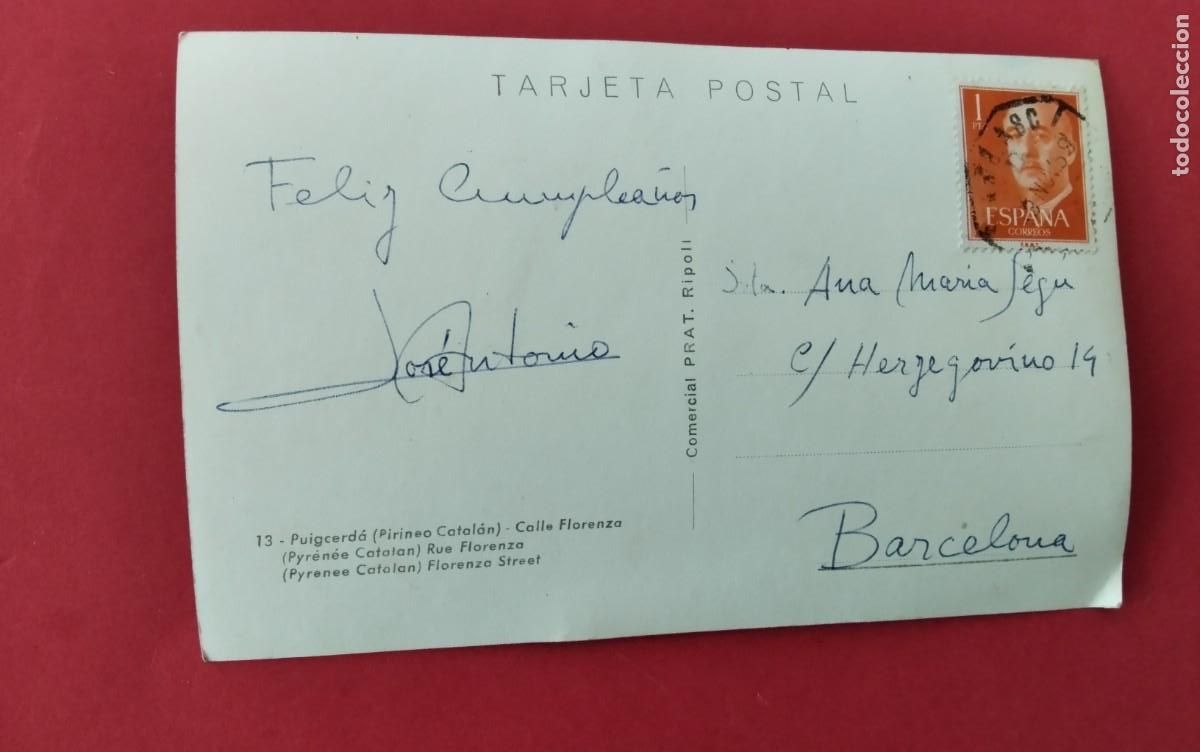 TARJETA POSTAL
Feliz Cumpleaños
José Antonio
13 - Puigcerdá (Pirineo Catalán) - Calle Florenza
(Pyrénée Catalan) Rue Florenza
(Pyrenee Catalan) Florenza Street
Comercial PRAT. Ripoll
1
PT
ESPAÑA
CORREOS
Ana Maria Segu
C/ Herzegovino 19
Barcelona
todocoleccion